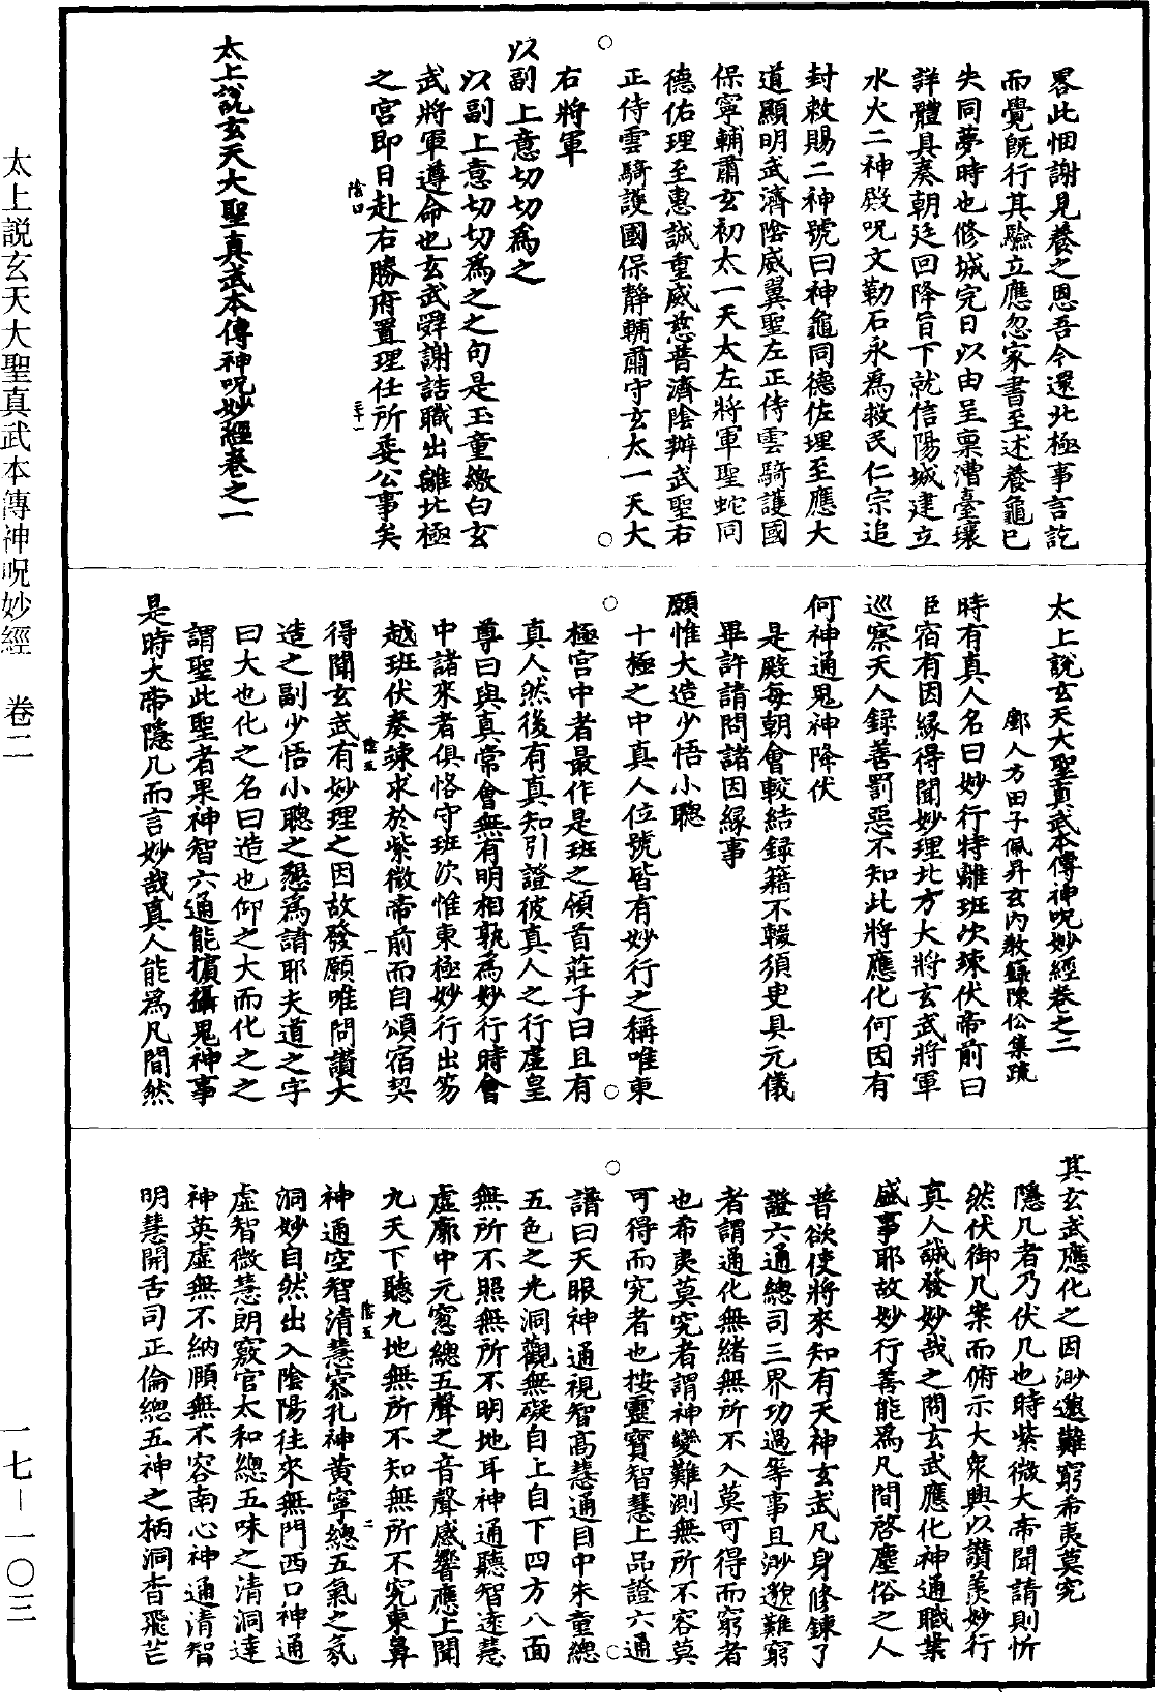 畧此悃謝見養之恩吾今還北極事言訖
而覺旣行其驗立應忽家書至述養龜已
失同夢時也修城完日以由呈禀漕臺瓌
詳體具奏朝廷回降旨下就信陽城建立
水火二神殿呪文勒石永爲救民仁宗追
封敕賜二神號曰神龜同德佐理至應大
道顯明武濟陰威翼聖左正侍雲騎護國
保寧輔肅玄初太一天大左將軍聖蛇同
德佑理至惠誠重威慈普濟陰辦武聖右
正侍雲騎護國保静輔肅守玄太一天大
右將軍
以副上意切切爲之
以副上意切切爲之之句是玉童繳白玄
武將軍遵命也玄武舜謝詰職出離北極
之宮即日赴右勝府置理任所委公事矣
太上説玄天大聖真武本傳神呪妙經卷之一
太上說玄天大聖真武本傳神呪妙經卷之二
鄭人方田子佩昇玄内教籙陳伀集疏
時有真人名曰妙行特離班次竦伏帝前曰
臣宿有因緣得聞妙理北方大將玄武將軍
巡察天人録善罰惡不知此將應化何因有
何神通鬼神降伏
是殿每朝會較結録籍不輟須臾具元儀
畢許請問諸因縁事
願惟大造少悟小聰
十極之中真人位號皆有妙行之稱唯東
極宫中者最作是班之領首莊子曰且有
真人然後有真知引證彼真人之行虛皇
尊曰與真常會無有明相孰爲妙行時會
中諸來者俱恪守班次惟東極妙行出笏
越班伏奏竦求於紫微帝前而自頌宿契
得聞玄武有妙理之因故發願唯問讃大
造之副少悟小聰之懇爲請耶夫道之字
曰大也化之名曰造也仰之大而化之之
謂聖此聖者果神智六通能擯攝鬼神事
是時大帝隱几而言妙哉真人能爲凡間然
其玄武應化之因渺邈難窮希夷莫究
隱几者乃伏几也時紫微大帝聞請則忻
然伏御几案而俯示大衆興以讃羡妙行
真人誠發妙哉之問玄武應化神通職業
盛事耶故妙行善能爲凡間啓塵俗之人
普欲使將來知有天神玄武凡身修鍊了
證六通總司三界功過等事且渺邈難窮
者謂通化無緒無所不入莫可得而窮者
也希夷莫究者謂神變難測無所不容莫
可得而究者也按靈寶智慧上品證六通
譜曰天眼神通視智高慧通目中朱童總
五色之光洞觀無礙自上自下四方八面
無所不照無所不明地耳神通聽智逺慧
虛廓中元窻總五聲之音聲感響應上聞
九天下聽九地無所不知無所不究東鼻
神通空智清慧宻孔神黄寧總五氣之氛
洞妙自然出入陰陽徃來無門西口神通
虛智微慧朗竅官太和總五味之清洞達
神英虛無不納順無不容南心神通清智
明慧開舌司正倫總五神之柄洞杳飛芒
太上説玄天大聖真武本傳神呪妙經　卷二
一七－一〇三